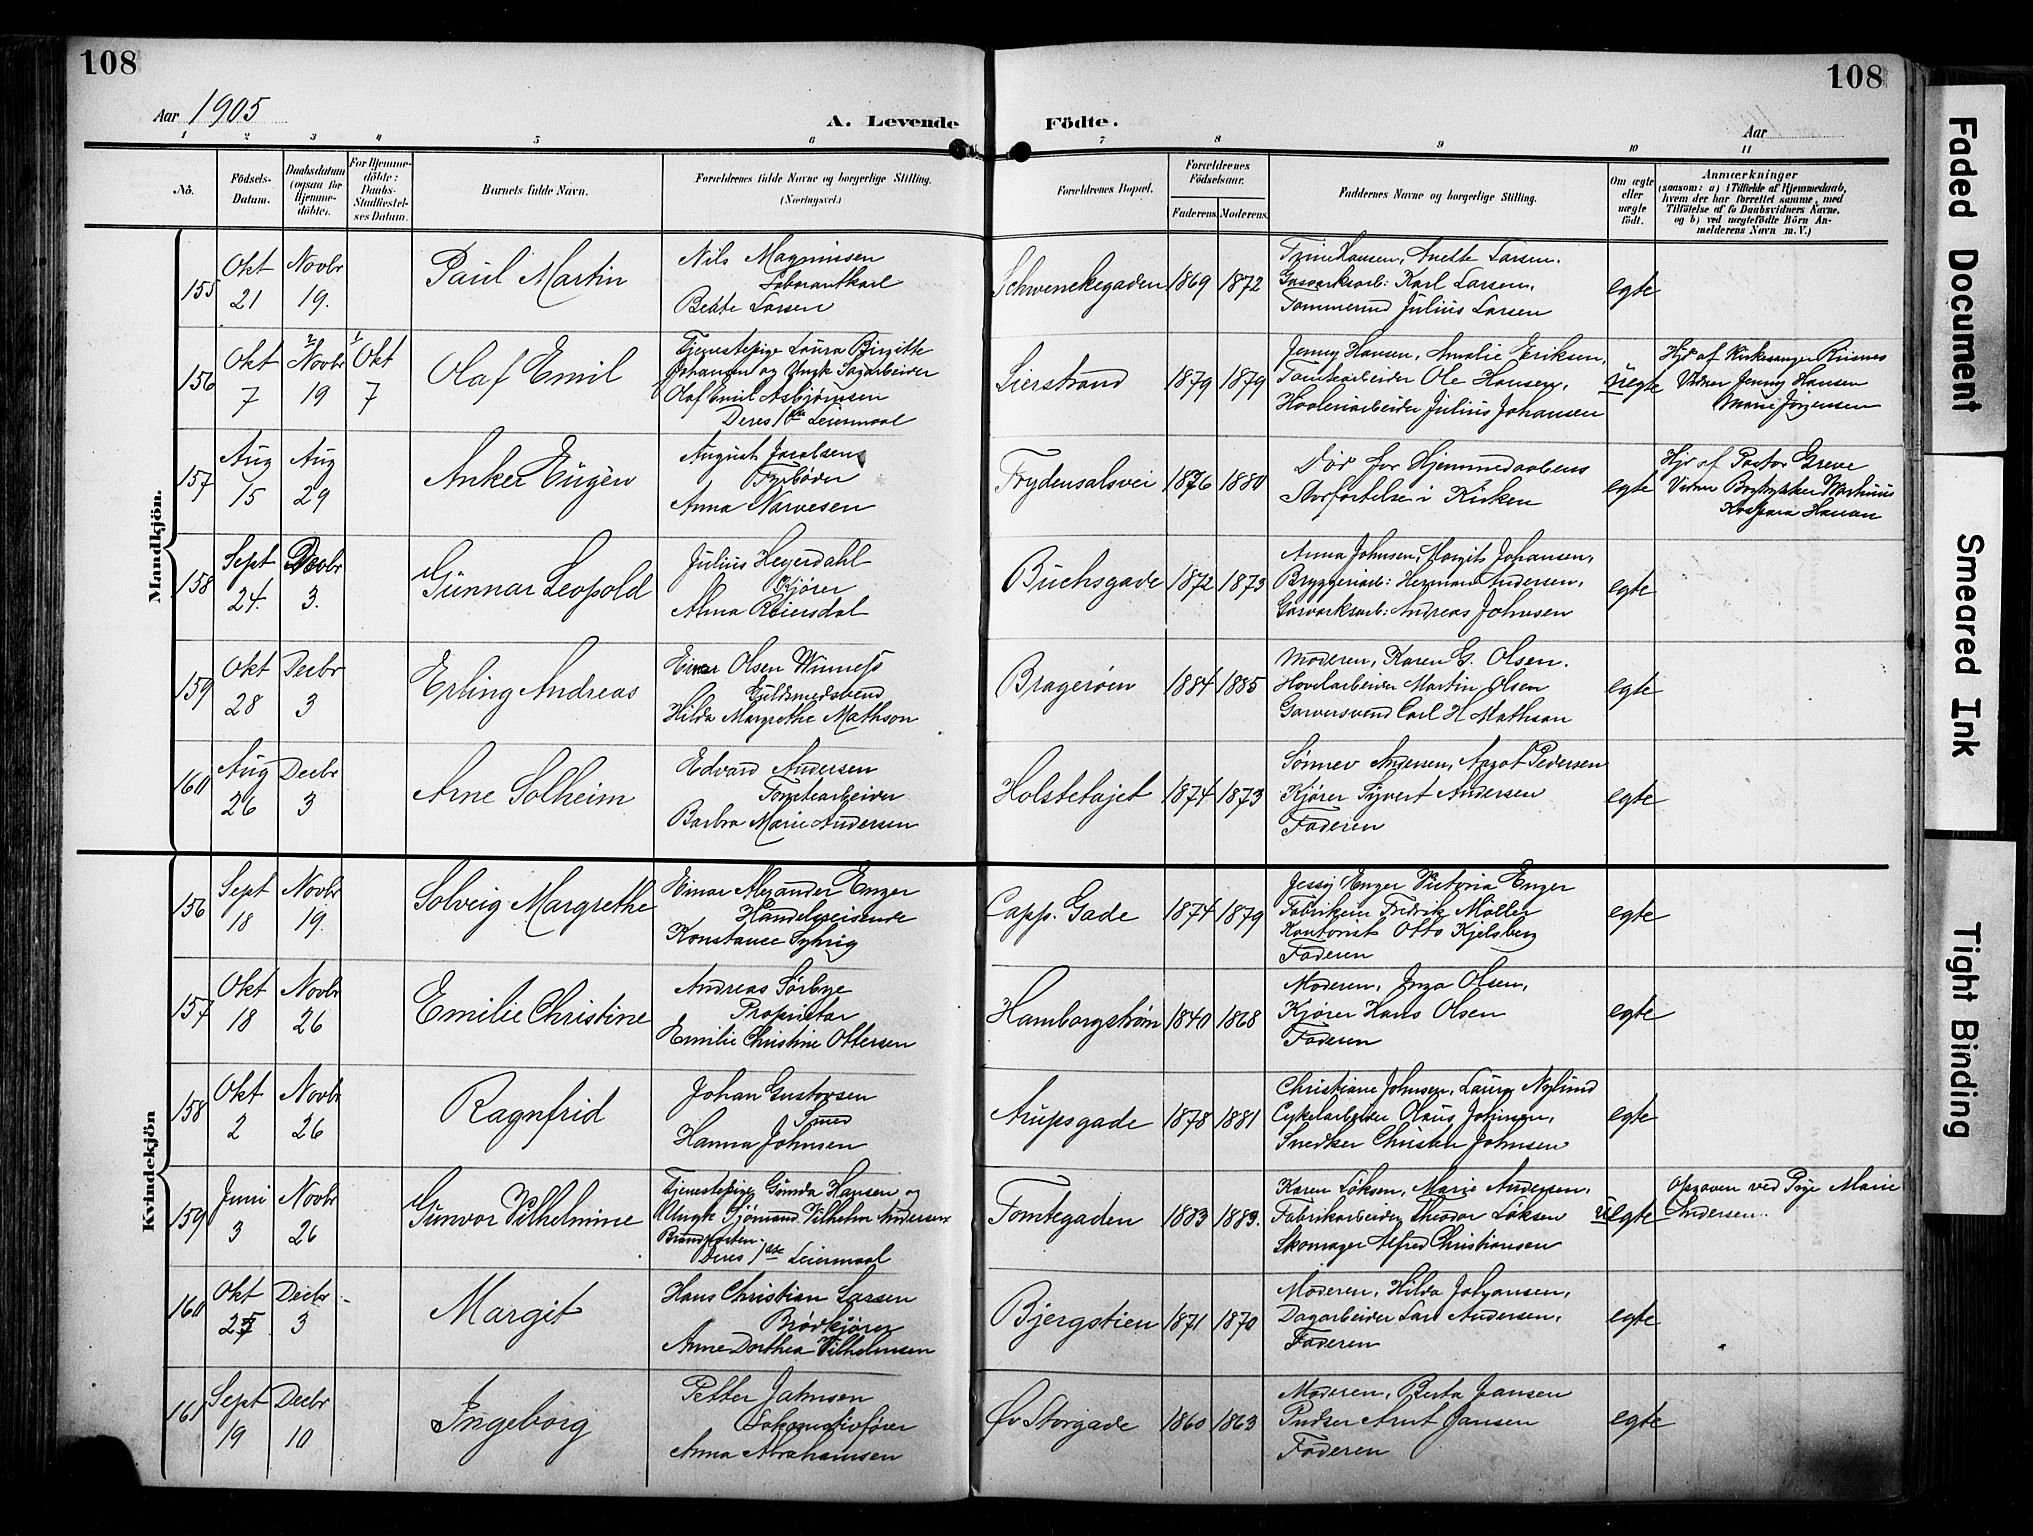 108
108
Aar 1905
A. Levende Födte.
Aar
1 2 3 4 5 6 7 8 9 10 11
No.
Födsels-Datum.
Daabsdatum (ogsaa for Hjemme-döbte).
For Hjemme-döbte: Daabs-Stadfæstel-ses Datum.
Barnets fulde Navn.
Forældrenes fulde Navne og borgerlige Stilling. (Næringsvei.)
Forældrenes Bopæl.
Forældrenes Födselsaar.
Faderens. Moderens.
Faddernes Navne og borgerlige Stilling.
Om ægte eller uægte födt.
Anmærkninger
(saasom: a) i Tilfælde af Hjemmedaab, hvem der har forrettet samme, med Tilföielse af to Daabsvidners Navne, og b) ved uægtefödte Börn An-melderens Navn m. V.)
Mandkjön.
155 Okt 21 Novbr 19. Paul Martin
Nils Magnussen
Laborantkarl
Beate Larsen
Schwenckegaden 1869 1872
Trine Hansen, Anette Larsen.
Gasverksarb: Karl Larsen,
Tømmermd Julius Larsen
egte
156 Okt 7 2 Novbr 19 1 Okt 7 Olaf Emil
Tjenestepige Laura Birgitte
Johansen og Ungk Sagarbeider
Olaf Emil Asbjørnsen
Deres 1ste Leiermaal
Lierstrand 1879 1879
Jenny Hansen, Amalie Eriksen,
Tomtearbeider Ole Hansen,
Høvleriarbeider Julius Johansen
uegte
Hjd af Kirkesanger Riisnes
Vidner Jenny Hansen
Marie Jørgensen
157 Aug 15 Aug 29 Anker Eugen
August Jacobsen
Fyrbøder
Anna Narvesen
Frydensalsvei 1876 1880
Død før Hjemmedaabens
Stadfæstelse i Kirken
egte
Hjd af Pastor Greve
Vidner Bogtrykker Martinius
Hansen
158 Sept 24. Decbr 3. Gunnar Leopold
Julius Heyerdahl
Kjører
Alma Reiersdal
Buchsgade 1872 1873
Anna Johnsen, Margit Johansen,
Bryggeriarb: Herman Andersen,
Gasverksarb: Andreas Johnsen
egte
159 Okt 28 Decbr 3 Erling Andreas
Einar Olsen Winness
Guldsmedsvend
Hilda Margrethe Mathson
Bragerøen 1884 1885
Moderen, Karen G. Olsen.
Høvelarbeider Martin Olsen
Garversvend Carl H Mathson
egte
160 Aug 26 Decbr 3 Arne Solheim
Edvard Andersen
Tomtearbeider
Barbra Marie Andersen
Holstetajet 1874 1873
Sønnev Andersen, Aagot Pedersen
Kjører Syvert Andersen
Faderen
egte
Kvindekjön
156 Sept 18 Novbr 19. Solveig Margrethe
Einar Alexander Enger
Handelsreisende
Konstance Syhrig
Capp. Gade 1874 1879
Jessy Enger Victoria Enger
Fabrikeier Fredrik Møller
Kontorist Otto Kjelsberg
Faderen
egte
157 Okt 18 Novbr 26 Emilie Christine
Andreas Sørbye
Proprietær
Emilie Christine Ottersen
Hamborgstrøm 1840 1868
Moderen, Inga Olsen,
Kjører Hans Olsen
Faderen
egte
158 Okt 2 Novbr 26 Ragnfrid
Johan Gustavsen
Smed
Hanna Johnsen
Arupsgade 1878 1881
Christiane Johnsen, Laura Nylund
Cykelarbeider Olaus Johnsen,
Snedker Christian Johnsen
egte
159 Juni 3 Novbr 26 Gunvor Vilhelmine
Tjenestepige Gunda Hansen og
Ungk Sjømand Vilhelm Andersen
Brandposten
Deres 1ste Leiermaal
Tomtegaden 1883 1883.
Karen Løksen, Marie Andersen,
Fabrikarbeider Theodor Løksen
Skomager Alfred Christiansen
uegte
Opgaven ved Pige Marie
Andersen.
160 Okt 25 Decbr 3 Margit
Hans Christian Larsen
Brødkjører
Anne Dorthea Vilhelmsen
Bjergstien 1871 1870
Moderen, Hilda Johansen,
Dagarbeider Lars Andersen,
Faderen
egte
161 Sept 19 Decbr 10 Ingeborg
Petter Jahnsen
Lokomotivfører
Anna Abrahamsen
Øv Storgade 1860 1863
Moderen, Berta Jansen
Pudser Arnt Jansen
Faderen
egte
Faded Document
Smeared Ink
Tight Binding